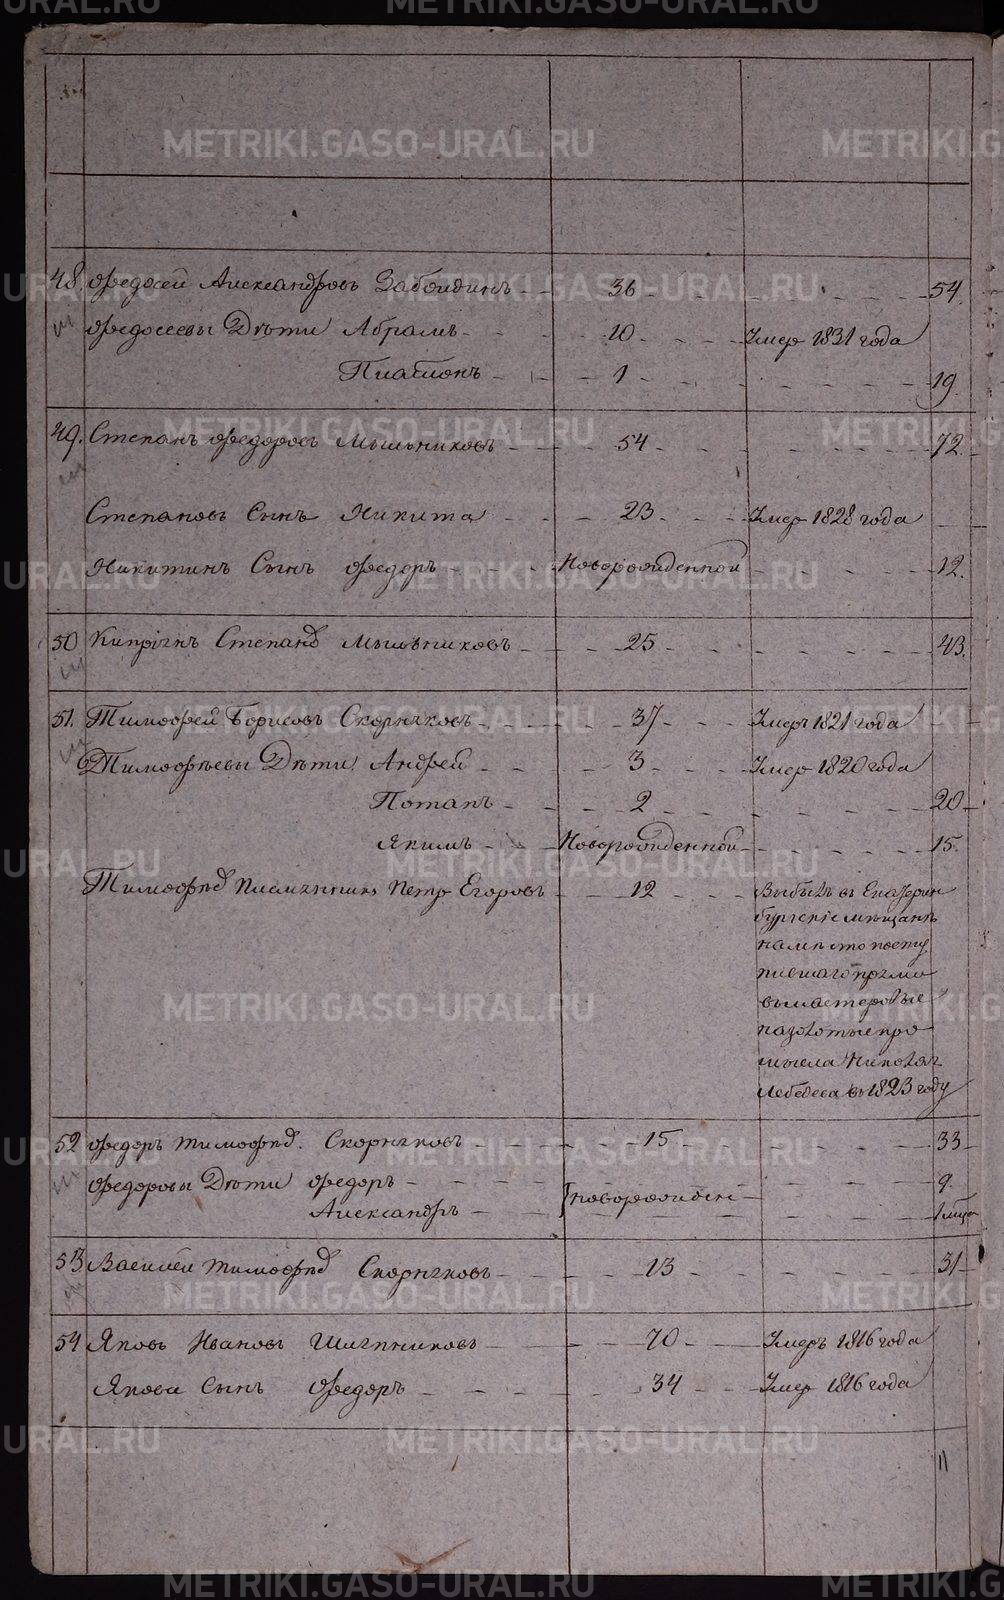 48. Федосей Александровъ Забоидинъ 36 54.
Федосеевы Дѣти Абрамъ 10 Умеръ 1831 года
Платонъ 1 19.
49. Степанъ Федоровъ Мыльниковъ 54 72.
Степановъ Сынъ Никита 23 Умеръ 1828 года
Никитинъ Сынъ Федоръ Новорожденной 12.
50 Кипріянъ Степанов Мыльниковъ 25 43.
51. Тимофей Борисовъ Скорняковъ 37 Умеръ 1821 года
Тимофѣевы Дѣти Андрей 3 Умеръ 1820 года
Потапъ 2 20
Якимъ Новорожденной 15.
Тимофѣев племянникъ Петръ Егоровъ 12 Выбылъ въ Екатерин
бургскіе мѣщанѣ
на мѣсто посту
пившаго
въ мастеровые
на золотые про
мысла Николая
Лебедева въ 1823 году
52 Федоръ Тимофѣев. Скорняковъ 15 33
Федоровы Дѣти Федоръ 9.
Александръ новорожден 1 мѣца
53 Василей Тимофѣев Скорняковъ 13 31
54 Яковъ Ивановъ Шляпниковъ 70 Умеръ 1816 года
Яковл Сынъ Федоръ 34 Умеръ 1816 года
11
METRIKI.GASO-URAL.RU